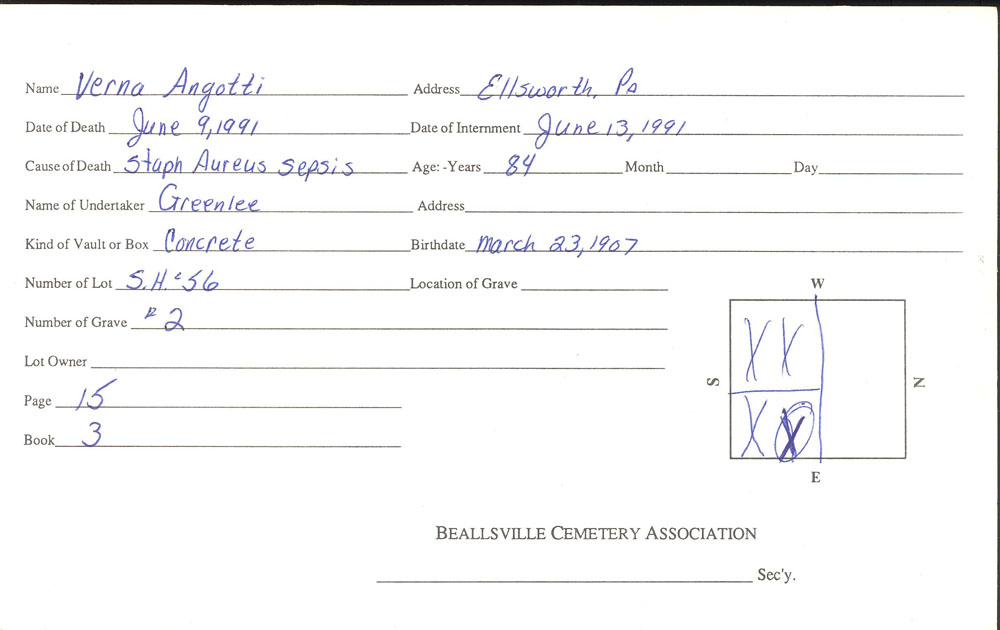 Name Verna Angotti Address Ellsworth, Pa
Date of Death June 9, 1991 Date of Internment June 13, 1991
Cause of Death Staph Aureus sepsis Age: -Years 84 Month Day
Name of Undertaker Greenlee Address
Kind of Vault or Box Concrete Birthdate March 23, 1907
Number of Lot S.H. 56 Location of Grave
W
Number of Grave # 2
Lot Owner
X X
S N
Page 15
X X
Book 3
E
BEALLSVILLE CEMETERY ASSOCIATION
Sec'y.